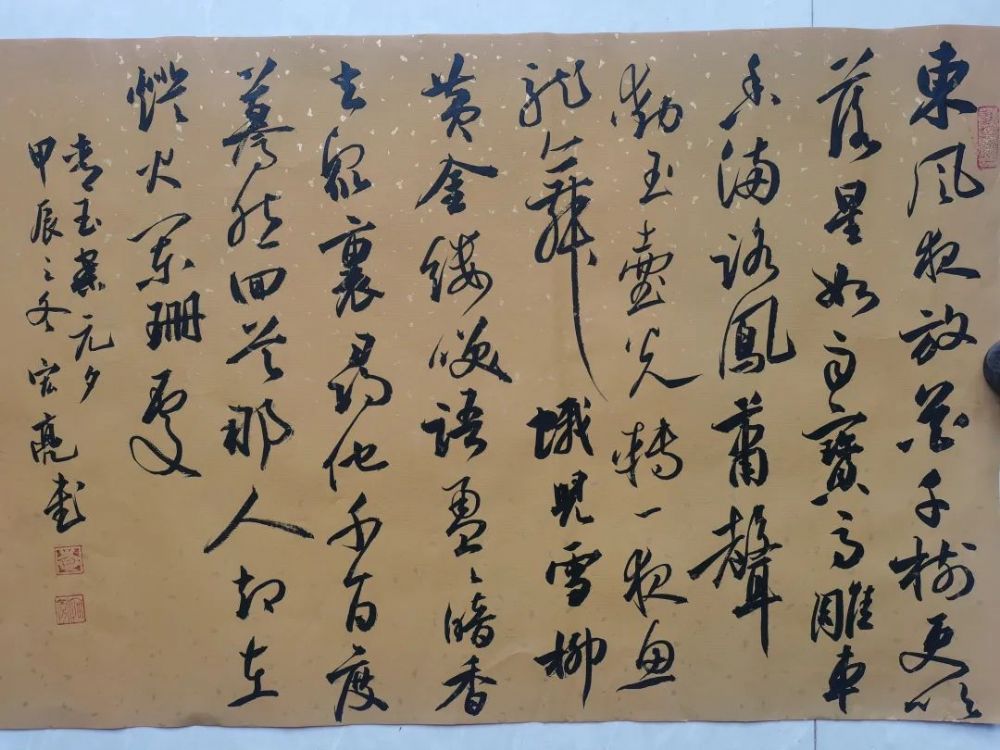 東風夜放花千樹更吹
落星如雨寶馬雕車
香滿路鳳簫聲
動玉壺光轉一夜魚
龍舞蛾兒雪柳
黃金縷笑語盈々暗香
去眾裏尋他千百度
驀然回首那人却在
燈火闌珊處
青玉案元夕
甲辰之冬宏亮書